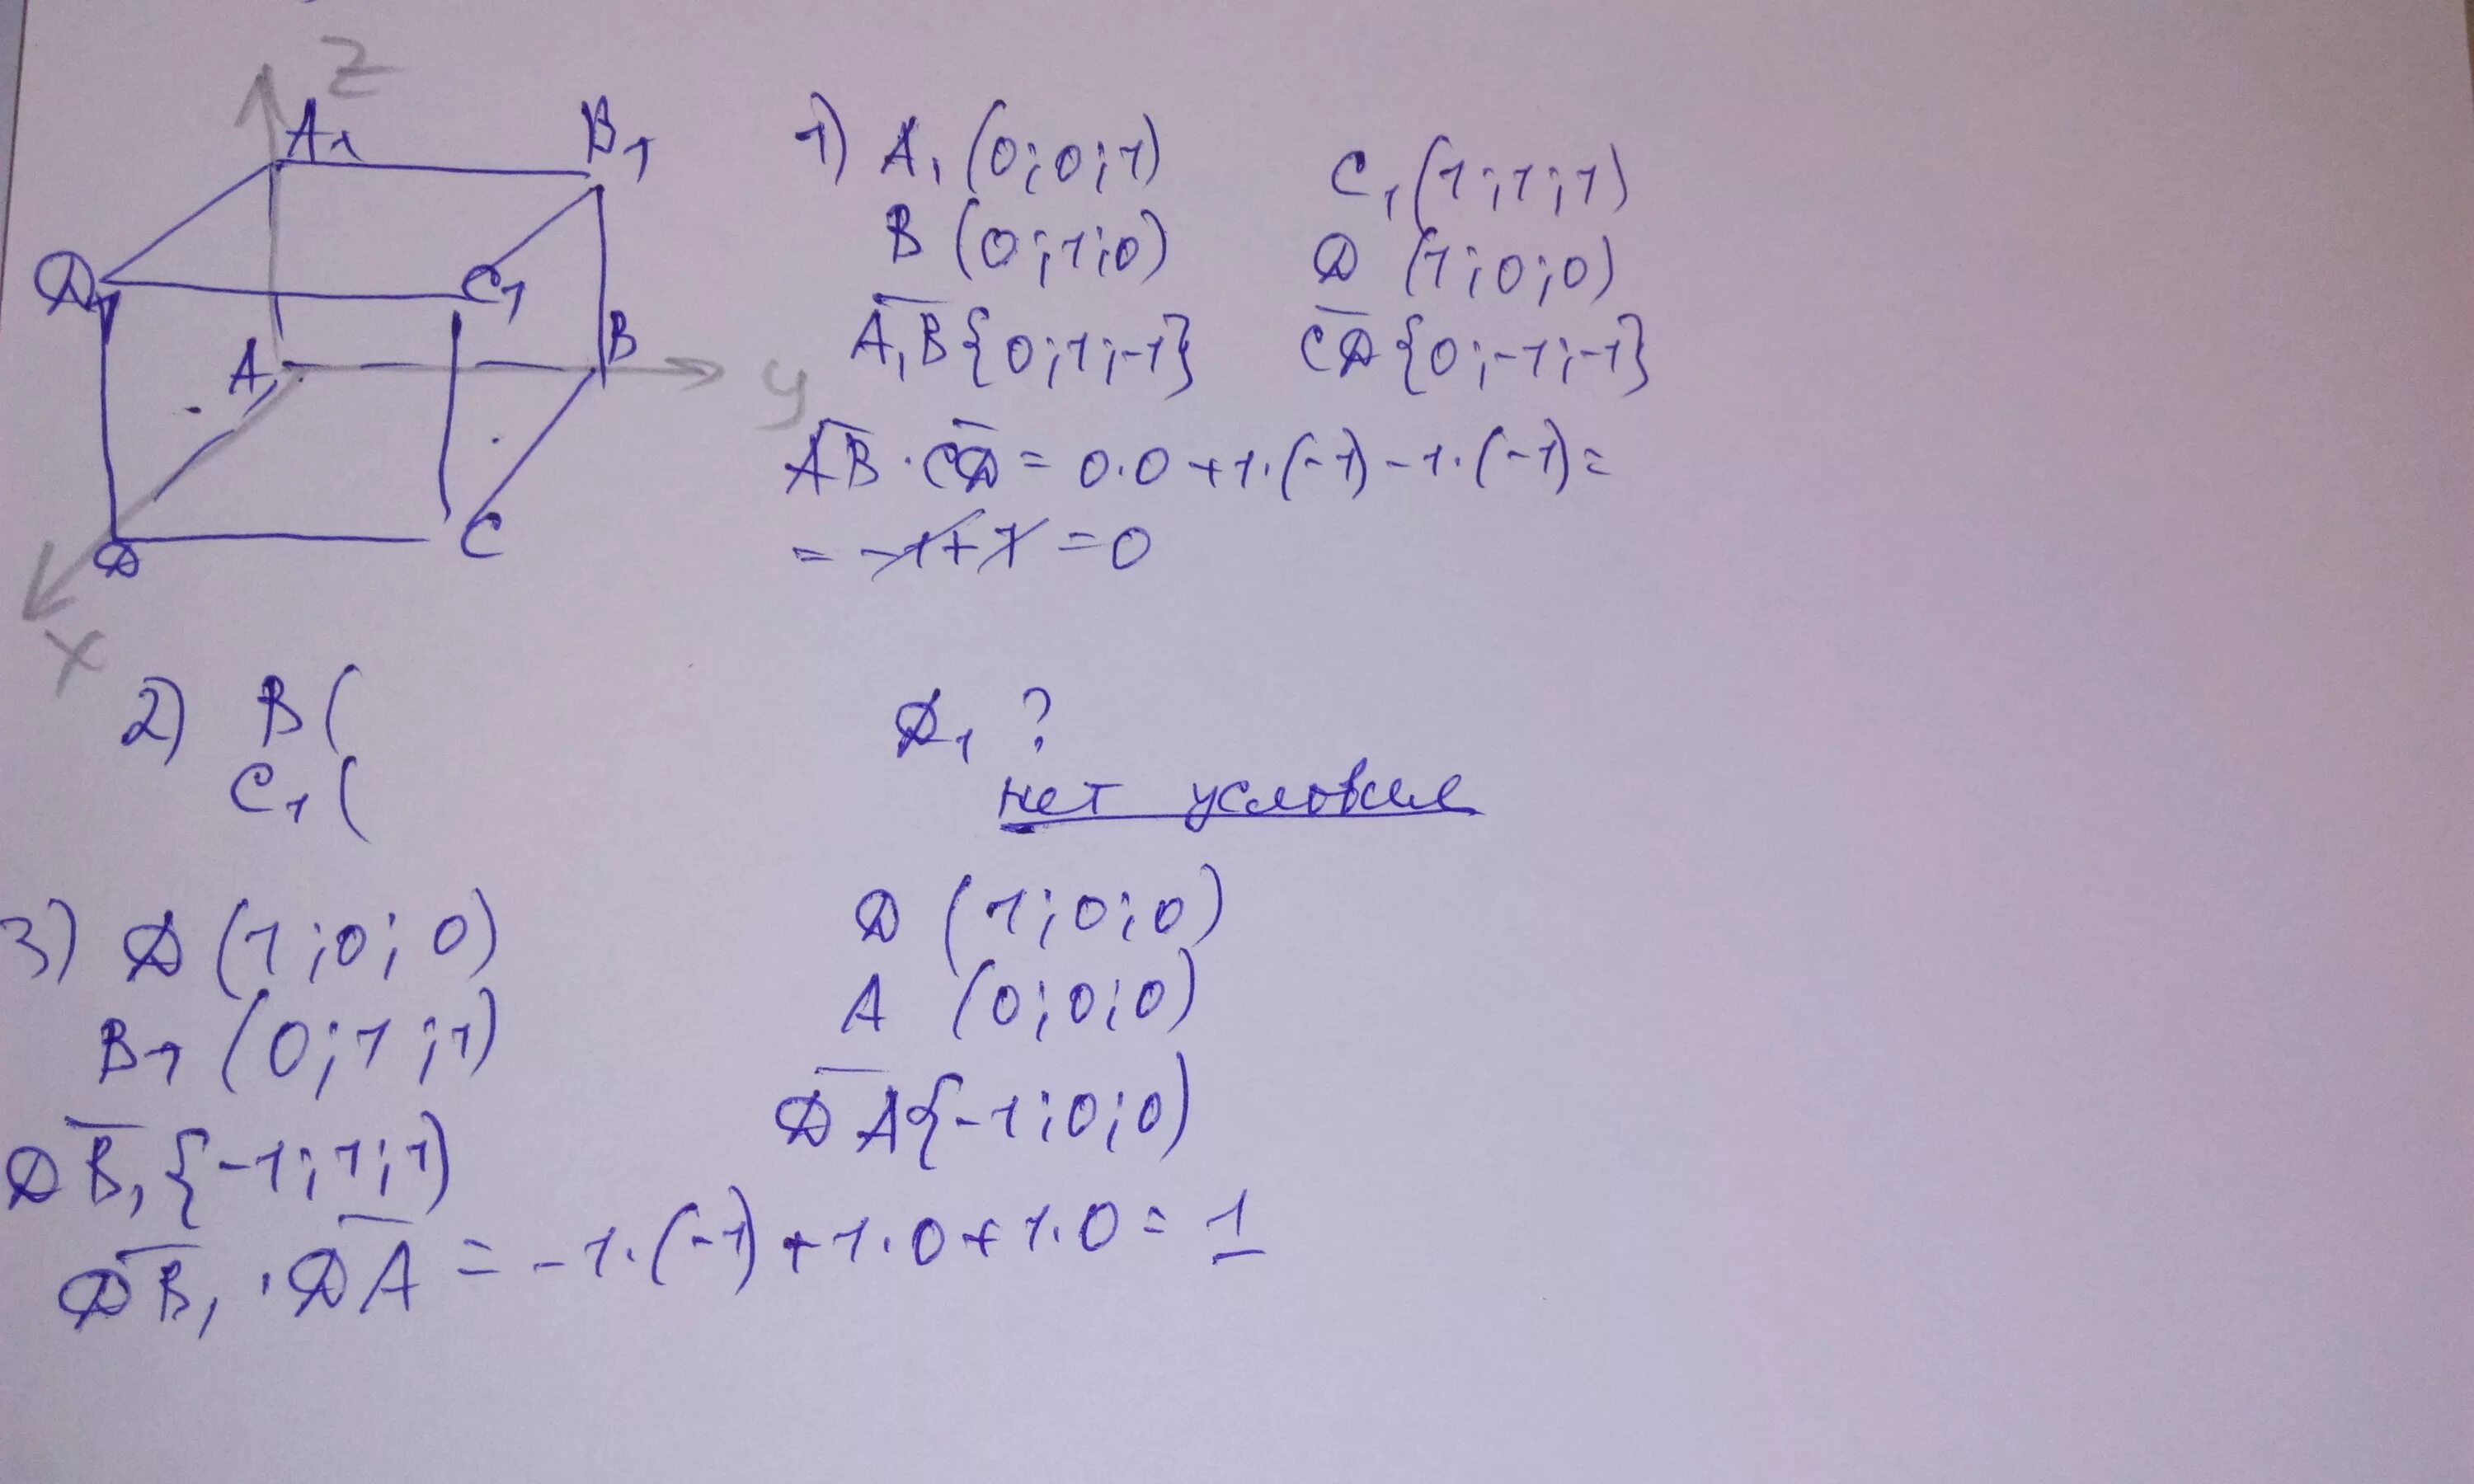 z
A₁ B₁
D₁ C₁
A B
y
D C
x
1) A₁ (0;0;1) C₁ (1;1;1)
B (0;1;0) D (1;0;0)
A₁B {0;1;-1} CD {0;-1;-1}
AB · CD = 0·0+1·(-1)-1·(-1)=
= -1+1 = 0
2) B ( D₁ ?
C₁ ( нет условия
3) D (1;0;0) D (1;0;0)
B₁ (0;1;1) A (0;0;0)
DB₁ {-1;1;1) DA {-1;0;0)
DB₁ · DA = -1·(-1)+1·0+1·0 = 1